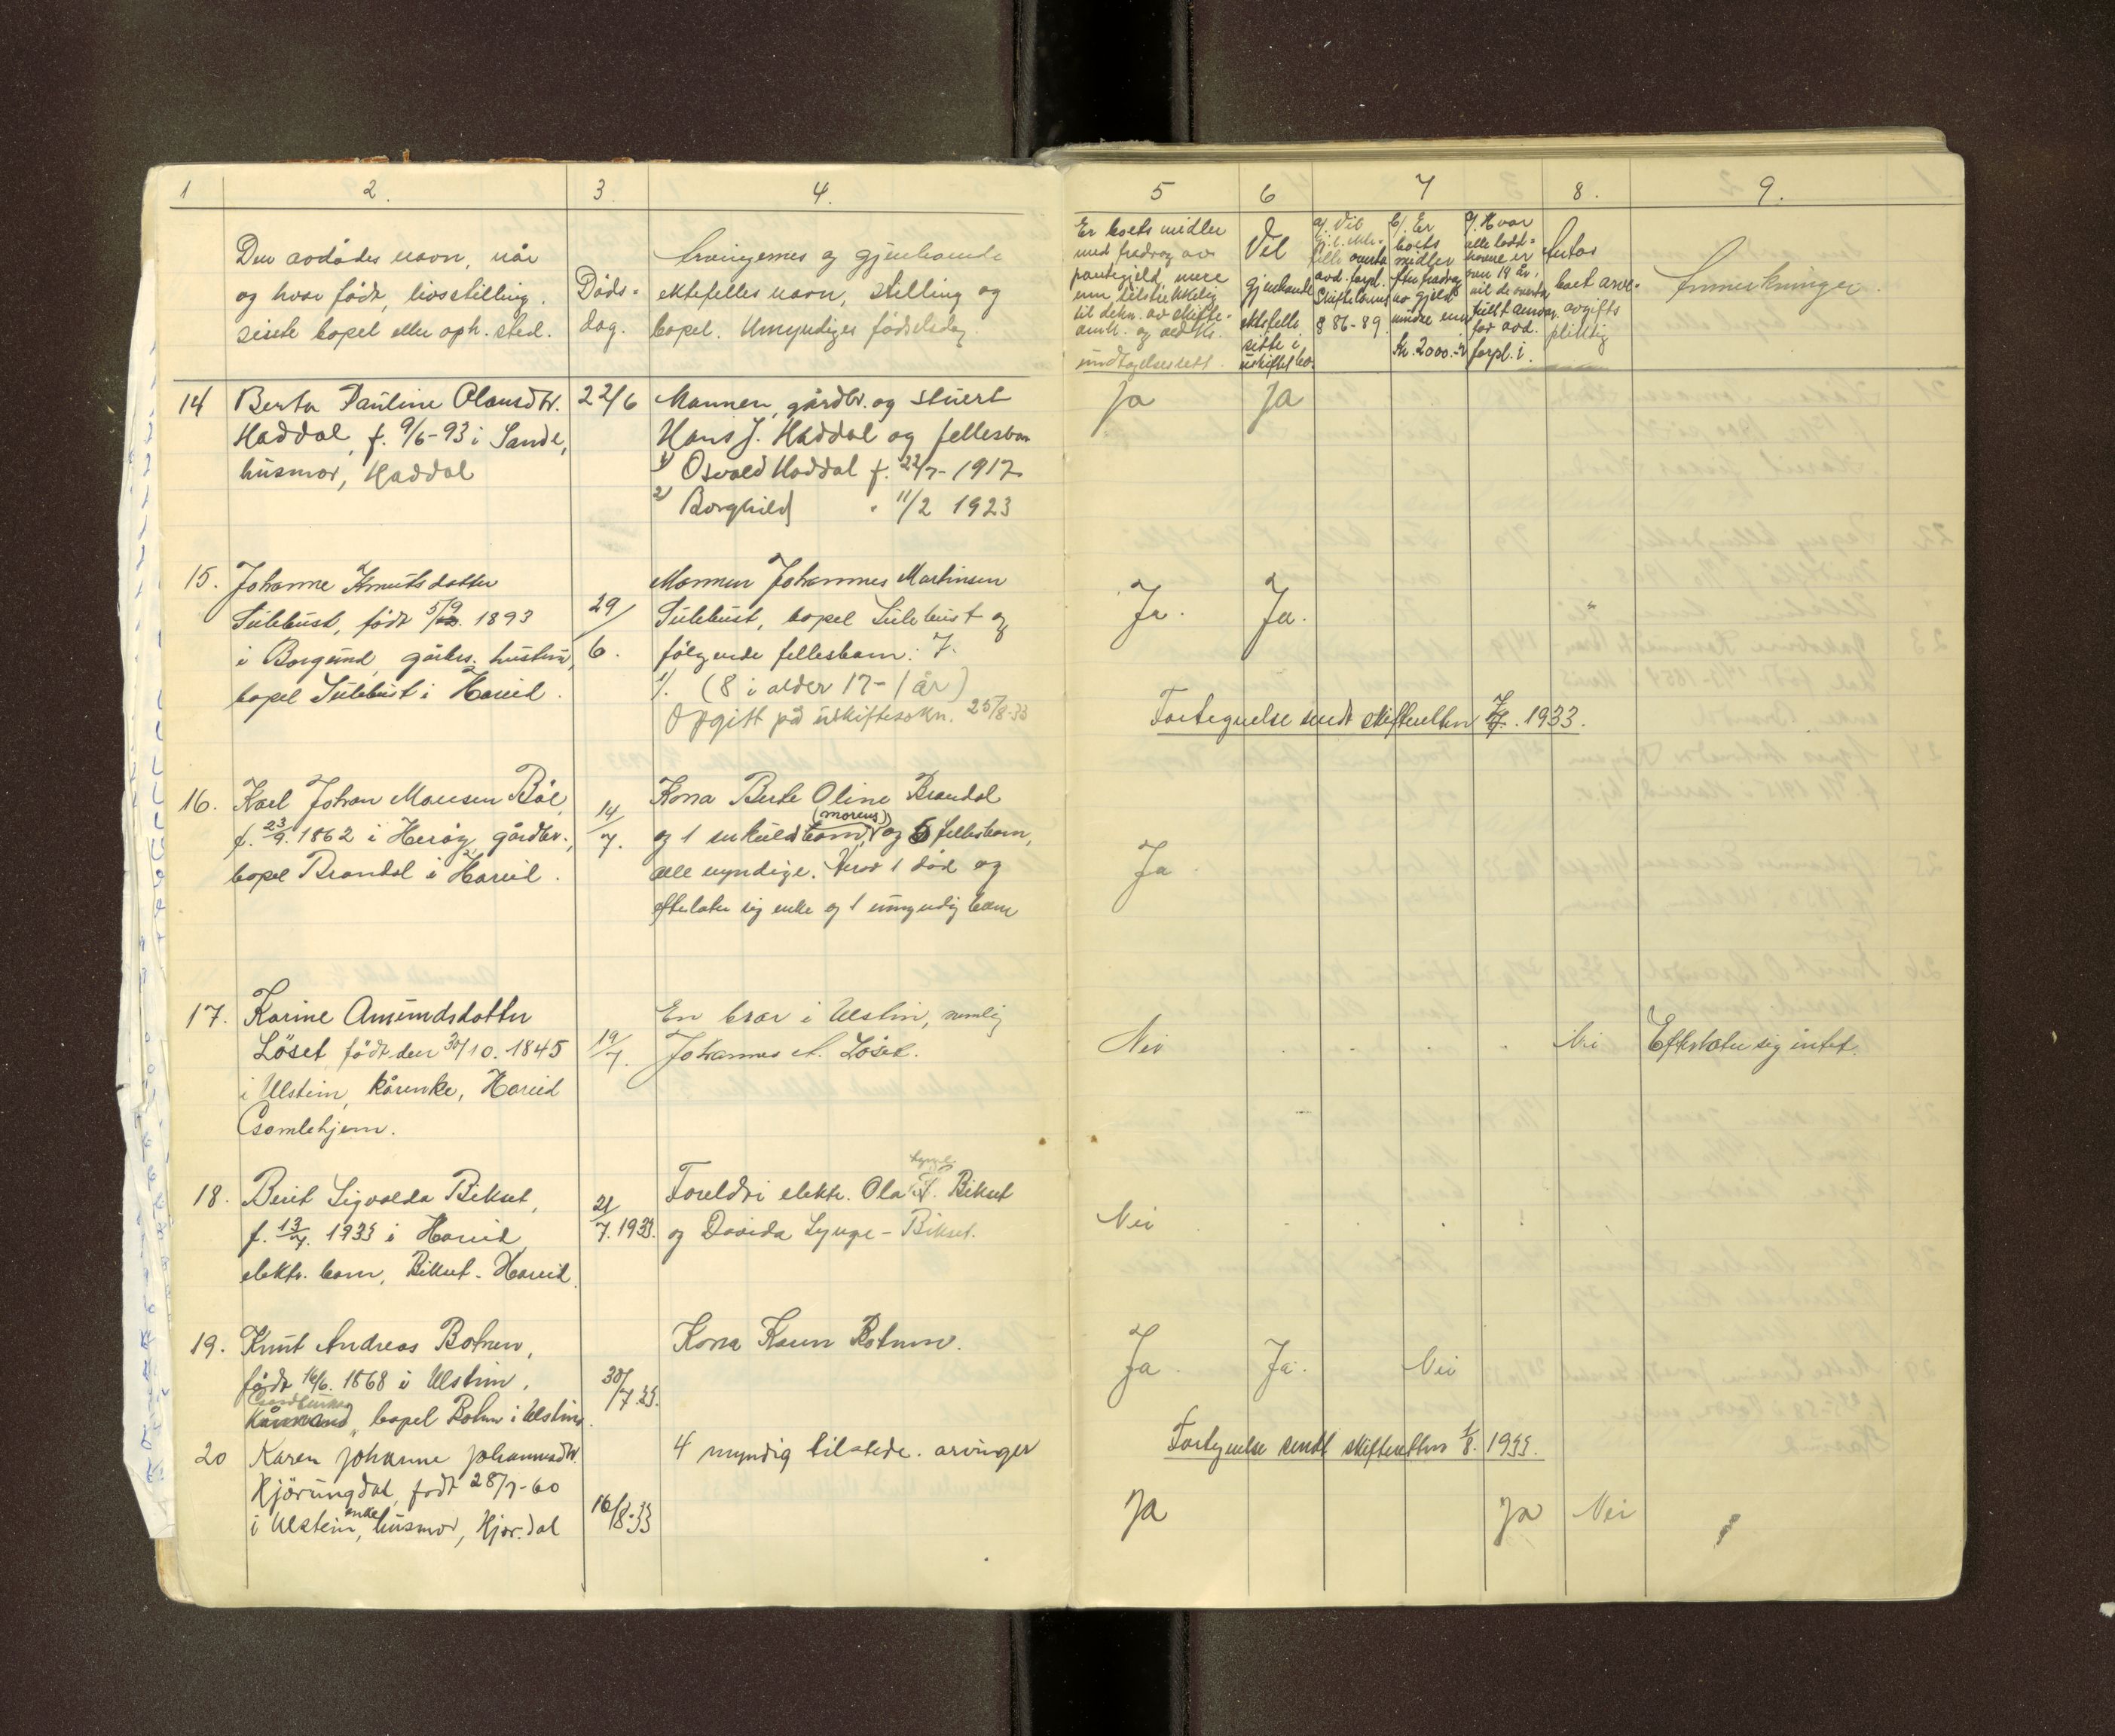 1 2. 3. 4. 5 6 7 8. 9.
Den avdødes navn, når
og hvor født, livsstilling.
siste bopel eller oph. sted.
Døds-
dag.
Arvingernes og gjenlevende
ektefelles navn, stilling og
bopel. Umyndiges fødselsdag.
Er boets midler
med fradrag av
pantegjeld, mere
enn tilstrekkelig
til dekn. av skifte-
omk. og
undtagelsesrett.
Vil
gjenlevende
ektefelle
sitte i
uskiftet bo.
a). Vil
felle overta
avd. forpl.
Skiftelovens
§ 86-89.
b). Er
boets
midler
efter fradrag
av gjeld
mindre enn
kr. 2000.-
c). Hvor
alle lodd-
havere er
over 18 år,
vil de overta
fullt ansvar
for avd.
forpl.
Antas
boet arve-
avgifts
pliktig
Anmerkninger.
14 Berta Pauline Olausdtr. 22/6 Mannen, gårdbr. og stuert Ja Ja
Haddal, f. 9/6-93 i Sande, Hans J. Haddal og fellesbarn
husmor, Haddal 1) Osvald Haddal f. 22/7-1917
2) Borghild " 11/2 1923
15. Johanne Knutsdatter Mannen Johannes Martinsen
Sulebust, født 5/9. 1893 29/6. Sulebust, bopel Sulebust og Ja. Ja.
i Borgund, gårbr. hustru, følgende fellesbarn: 7.
bopel Sulebust i Hareid. 1). (8 i alder 17-1 år)
Opgitt på uskiftesøkn. 25/8-33
Fortegnelse sendt skifteretten 1933.
16. Karl Johan Monsen Bøe, 14/7. Kona Berte Oline Brandal
f. 23/9. 1862 i Herøy, gårdbr., og 1 enkuldbarn, (morens) og 6 fellesbarn,
bopel Brandal i Hareid. alle myndige. Herav 1 død og Ja
efterlater sig enke og 1 umyndig barn
17. Karine Amundsdatter En bror i Ulstein, nemlig
Løset, født den 30/10. 1845 19/7. Johannes A. Løset. Nei Nei Efterlater sig intet.
i Ulstein, kårenke, Hareid
Gamlehjem.
18. Berit Sigvalda Bikset, 21/7. 1933. Foreldri elektr. Ola Bikset
f. 13/7. 1933 i Hareid, og Davida Lynge-Bikset. Nei
elektr. barn, Bikset-Hareid.
19. Knut Andreas Botnen, Kona Karen Botnen. Ja Ja. Nei
født 16/6. 1868 i Ulstein, 30/7.33.
Gardbruker
Kårmand, bopel Botnen i Ulstein.
Fortegnelse sendt skifteretten 1/8. 1933.
20 Karen Johanne Johannesdtr. 4 myndig tilstede. arvinger
Hjørungdal, født 28/7-60 16/8-33 Ja Ja Nei
i Ulstein, enke, husmor, Hjør.dal